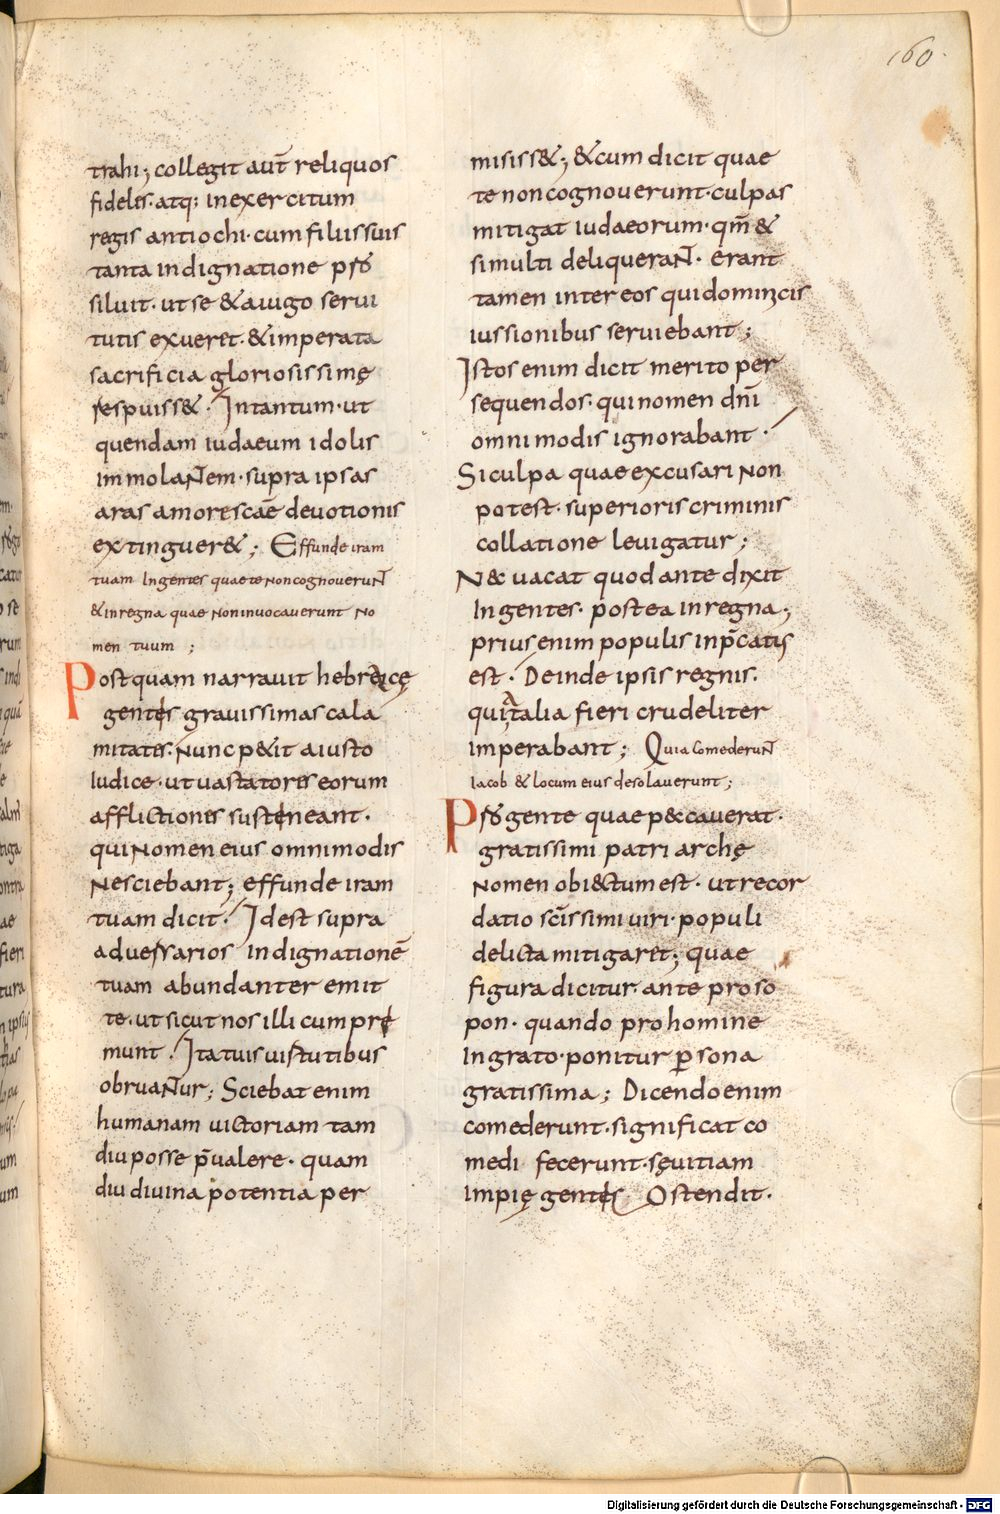 160.
trahi; collegit aut̄ reliquos
fideles· atq: inexercitum
regis antiochi· cum filiis suis
tanta indignatione p̄ss
siluit· ut se & a iugo servi
tutis exueret· & imperata
sacrificia gloriosissimę
respuiss&· Intantum· ut
quendam iudaeum idolis
immolaNTem· supra ipsas
aras amore scāe deuotionis
extinguer&; Effunde iram
tuam Ingentes quae te Non cognoveruNT
& in regna quae Non invocaverunt No
men tuum;
Postquam narravit hebreicę
gentes gravissimas cala
mitates· Nunc p&it a iusto
Iudice· ut vastatores eorum
afflictiones susteneant·
qui Nomen eius omnimodis
Nesciebant; effunde iram
tuam dicit· Idest supra
adversarios indignationē
tuam abundanter emit
te· ut sicut nos illi cum pre
munt· Ita tuis uistutibus
obruaNTur; Sciebat enim
humanam uictoriam tam
diu posse p̄ualere· quam
diu divina potentia per
misiss&; & cum dicit quae
te non cognoverunt· culpas
mitigat iudaeorum· qm̄ &
si multi deliqueraNT· erant
tamen inter eos qui dominicis
iussionibus serviebant;
Istos enim dicit merito per
sequendos· qui nomen dn̄i
omnimodis ignorabant·
Si culpa quae excusari Non
potest· superioris criminis
collatione levigatur;
N& vacat quod ante dixit
In gentes· postea in regna;
prius enim populis inp̄catus
est· Deinde ipsis regnis·
qui A talia fieri crudeliter
imperabant; Quia ComederuNT
Iacob & locum eius desolaverunt;
P̄ss gente quae p&caverat·
gratissimi patriarchę
Nomen obi&ctum est· ut recor
datio scīssimi uiri· populi
delicta mitigaret; quae
figura dicitur· ante proso
pon· quando pro homine
Ingrato· ponitur p̱sona
gratissima; Dicendo enim
comederunt· significat co
medi fecerunt· sęuitiam
impię gentes Ostendit·
Digitalisierung gefördert durch die Deutsche Forschungsgemeinschaft - DFG